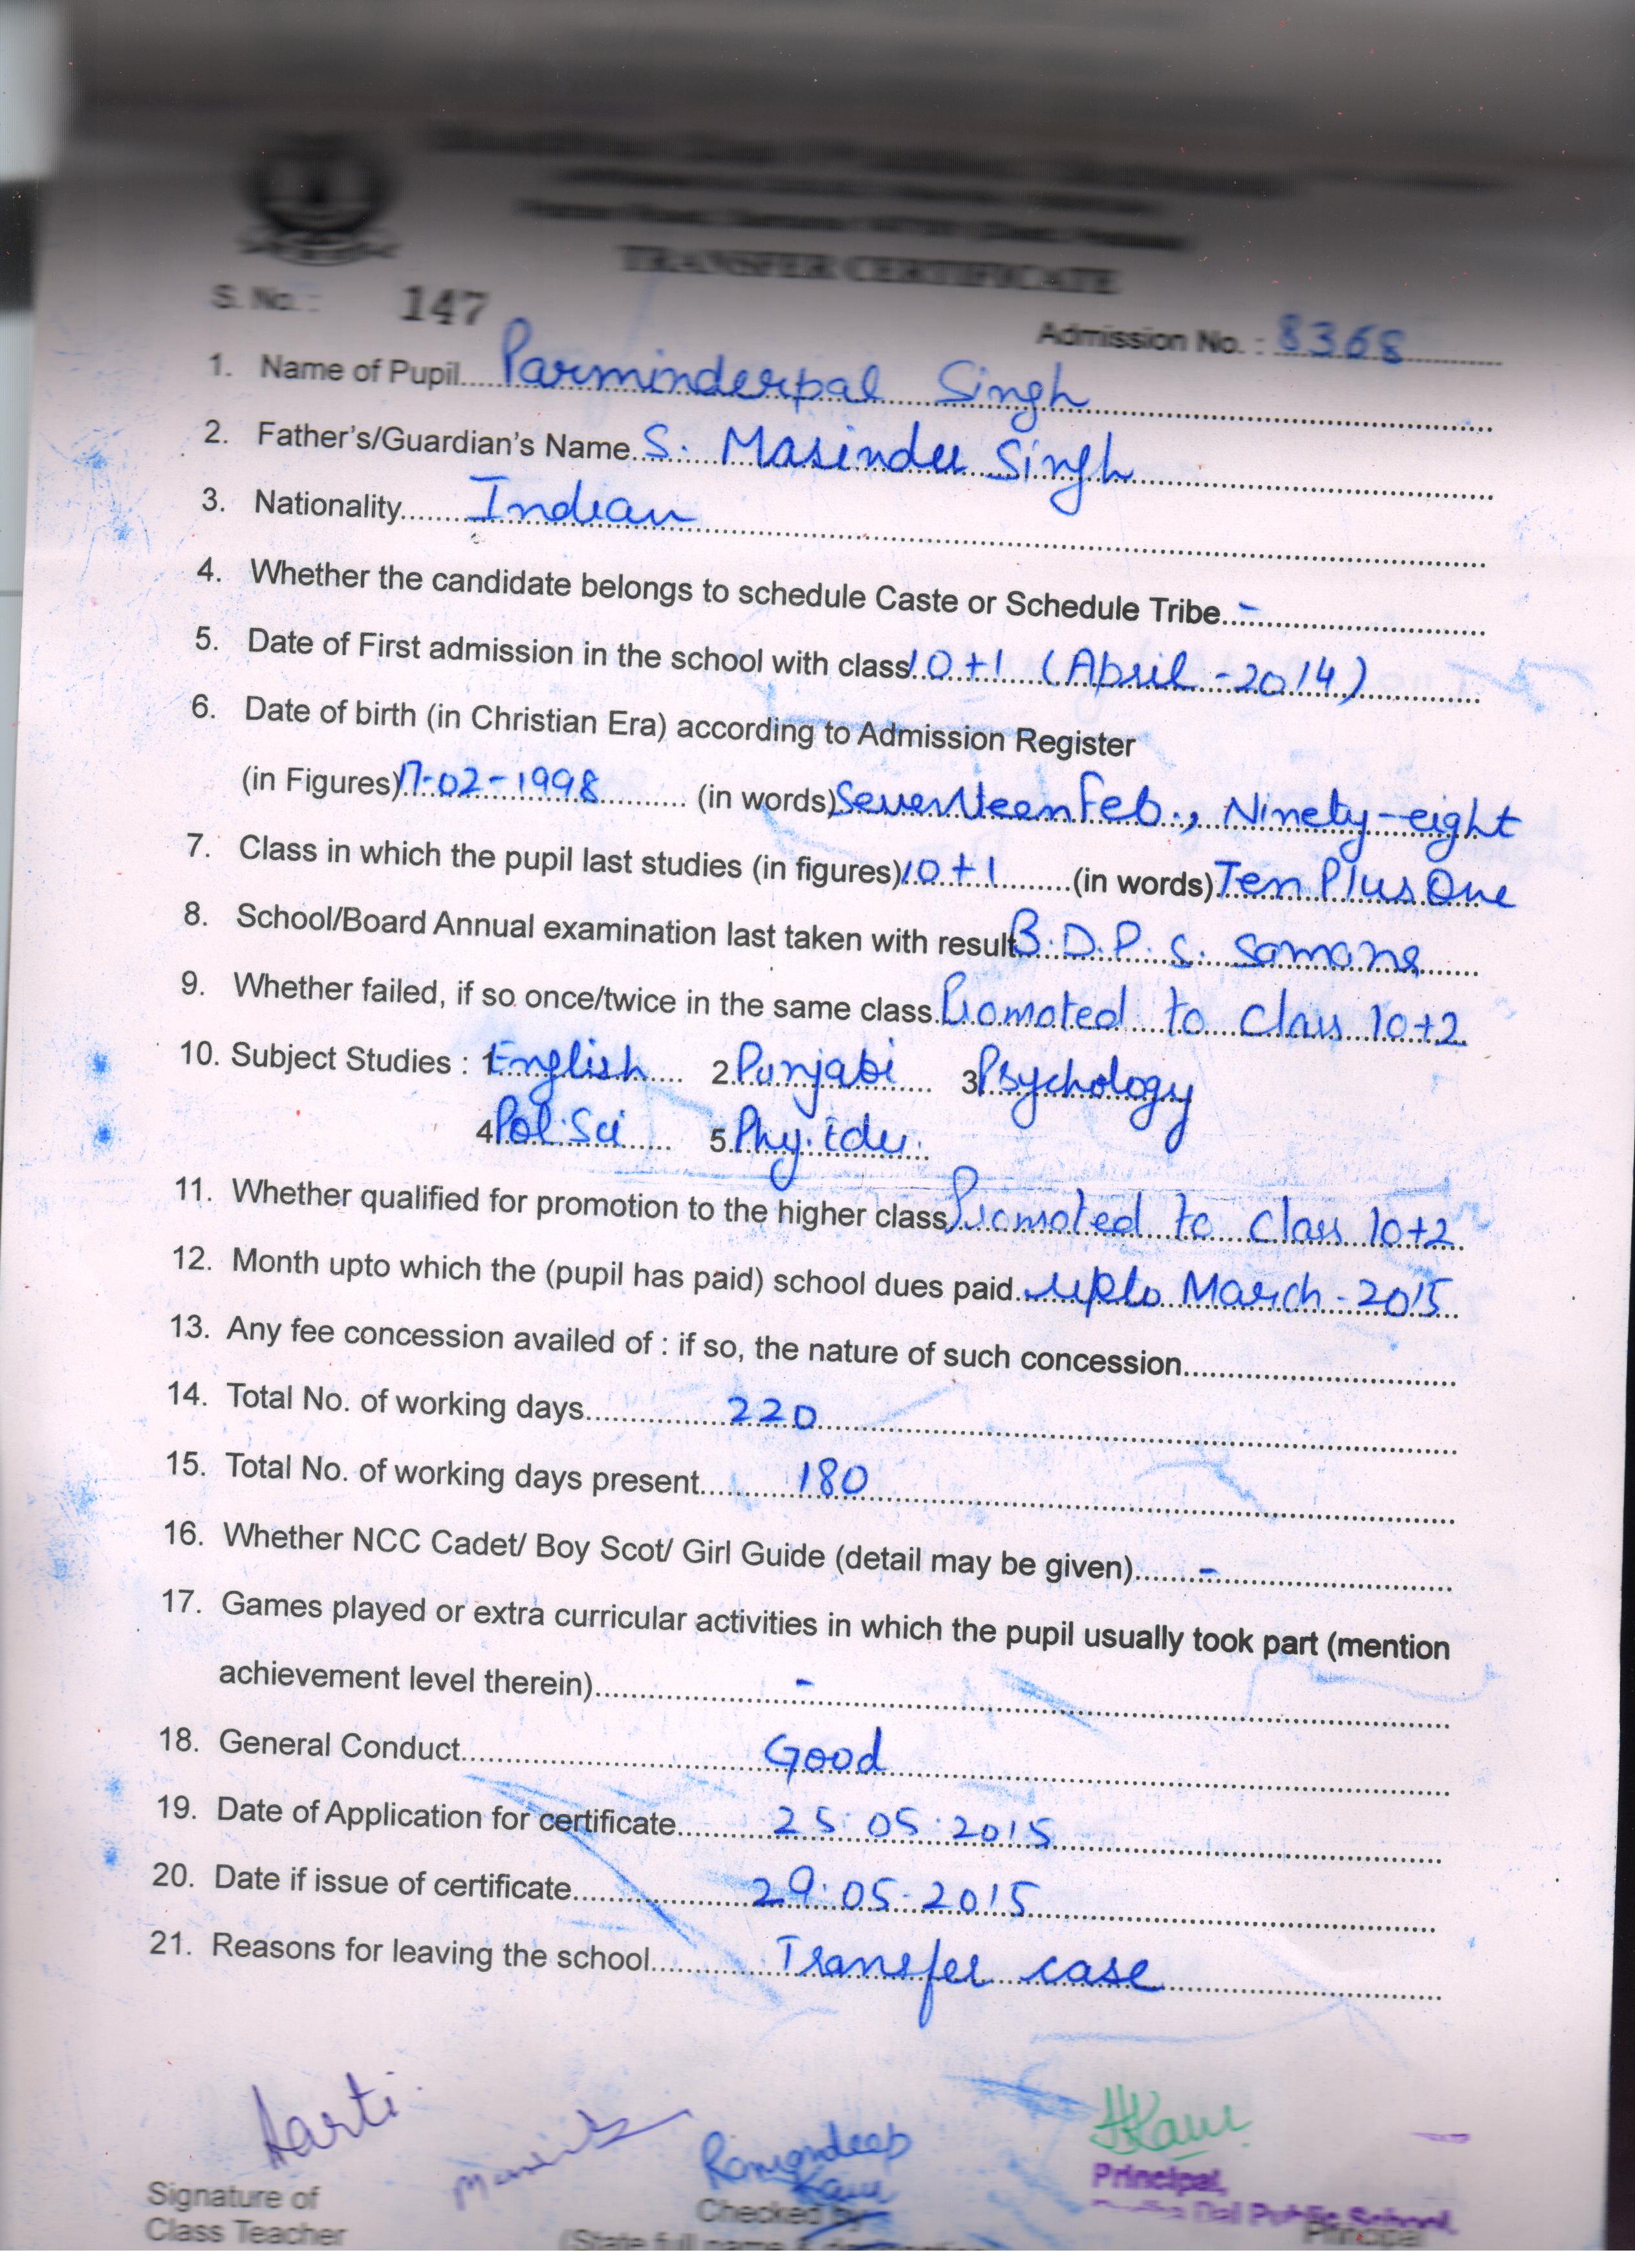 TRANSFER CERTIFICATE
S. No. : 147
Admission No. : 8368
1. Name of Pupil Parminderpal Singh
2. Father's/Guardian's Name S. Masinder Singh
3. Nationality Indian
4. Whether the candidate belongs to schedule Caste or Schedule Tribe -
5. Date of First admission in the school with class 10+1 (April - 2014)
6. Date of birth (in Christian Era) according to Admission Register
(in Figures) 17-02-1998 (in words) Seventeen Feb., Ninety-eight
7. Class in which the pupil last studies (in figures) 10+1 (in words) Ten Plus One
8. School/Board Annual examination last taken with result B.D.P.S. Samana
9. Whether failed, if so once/twice in the same class. Promoted to Class 10+2
10. Subject Studies : 1. English 2. Punjabi 3. Psychology
4. Pol. Sci 5. Phy. Edu.
11. Whether qualified for promotion to the higher class Promoted to Class 10+2
12. Month upto which the (pupil has paid) school dues paid upto March - 2015
13. Any fee concession availed of : if so, the nature of such concession
14. Total No. of working days 220
15. Total No. of working days present 180
16. Whether NCC Cadet/ Boy Scot/ Girl Guide (detail may be given) -
17. Games played or extra curricular activities in which the pupil usually took part (mention
achievement level therein) -
18. General Conduct Good
19. Date of Application for certificate 25.05.2015
20. Date if issue of certificate 29.05.2015
21. Reasons for leaving the school Transfer case
Aarti
Ramandeep
Kaur
HKaur
Principal,
Dal Public School,
Signature of
Class Teacher
Checked by
Principal
(State full name &